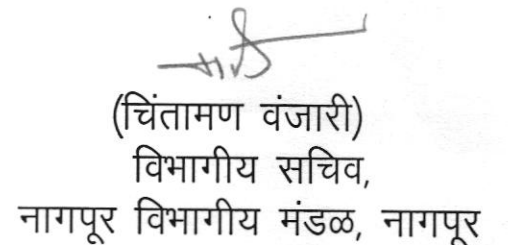 (चिंतामण वंजारी)
विभागीय सचिव,
नागपूर विभागीय मंडळ, नागपूर